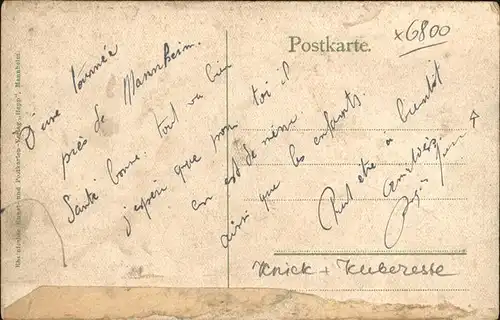 Postkarte.
x6800
D'une tournée
près de Mannheim.
Santé bonne. tout va bien
j'espère que pour toi il
en est de même
ainsi que les enfants.
Peut etre à bientôt
amitiés
Knick + Kleberesse
Rheinische Kunst- und Postkarten-Verlag „Hepp", Mannheim.